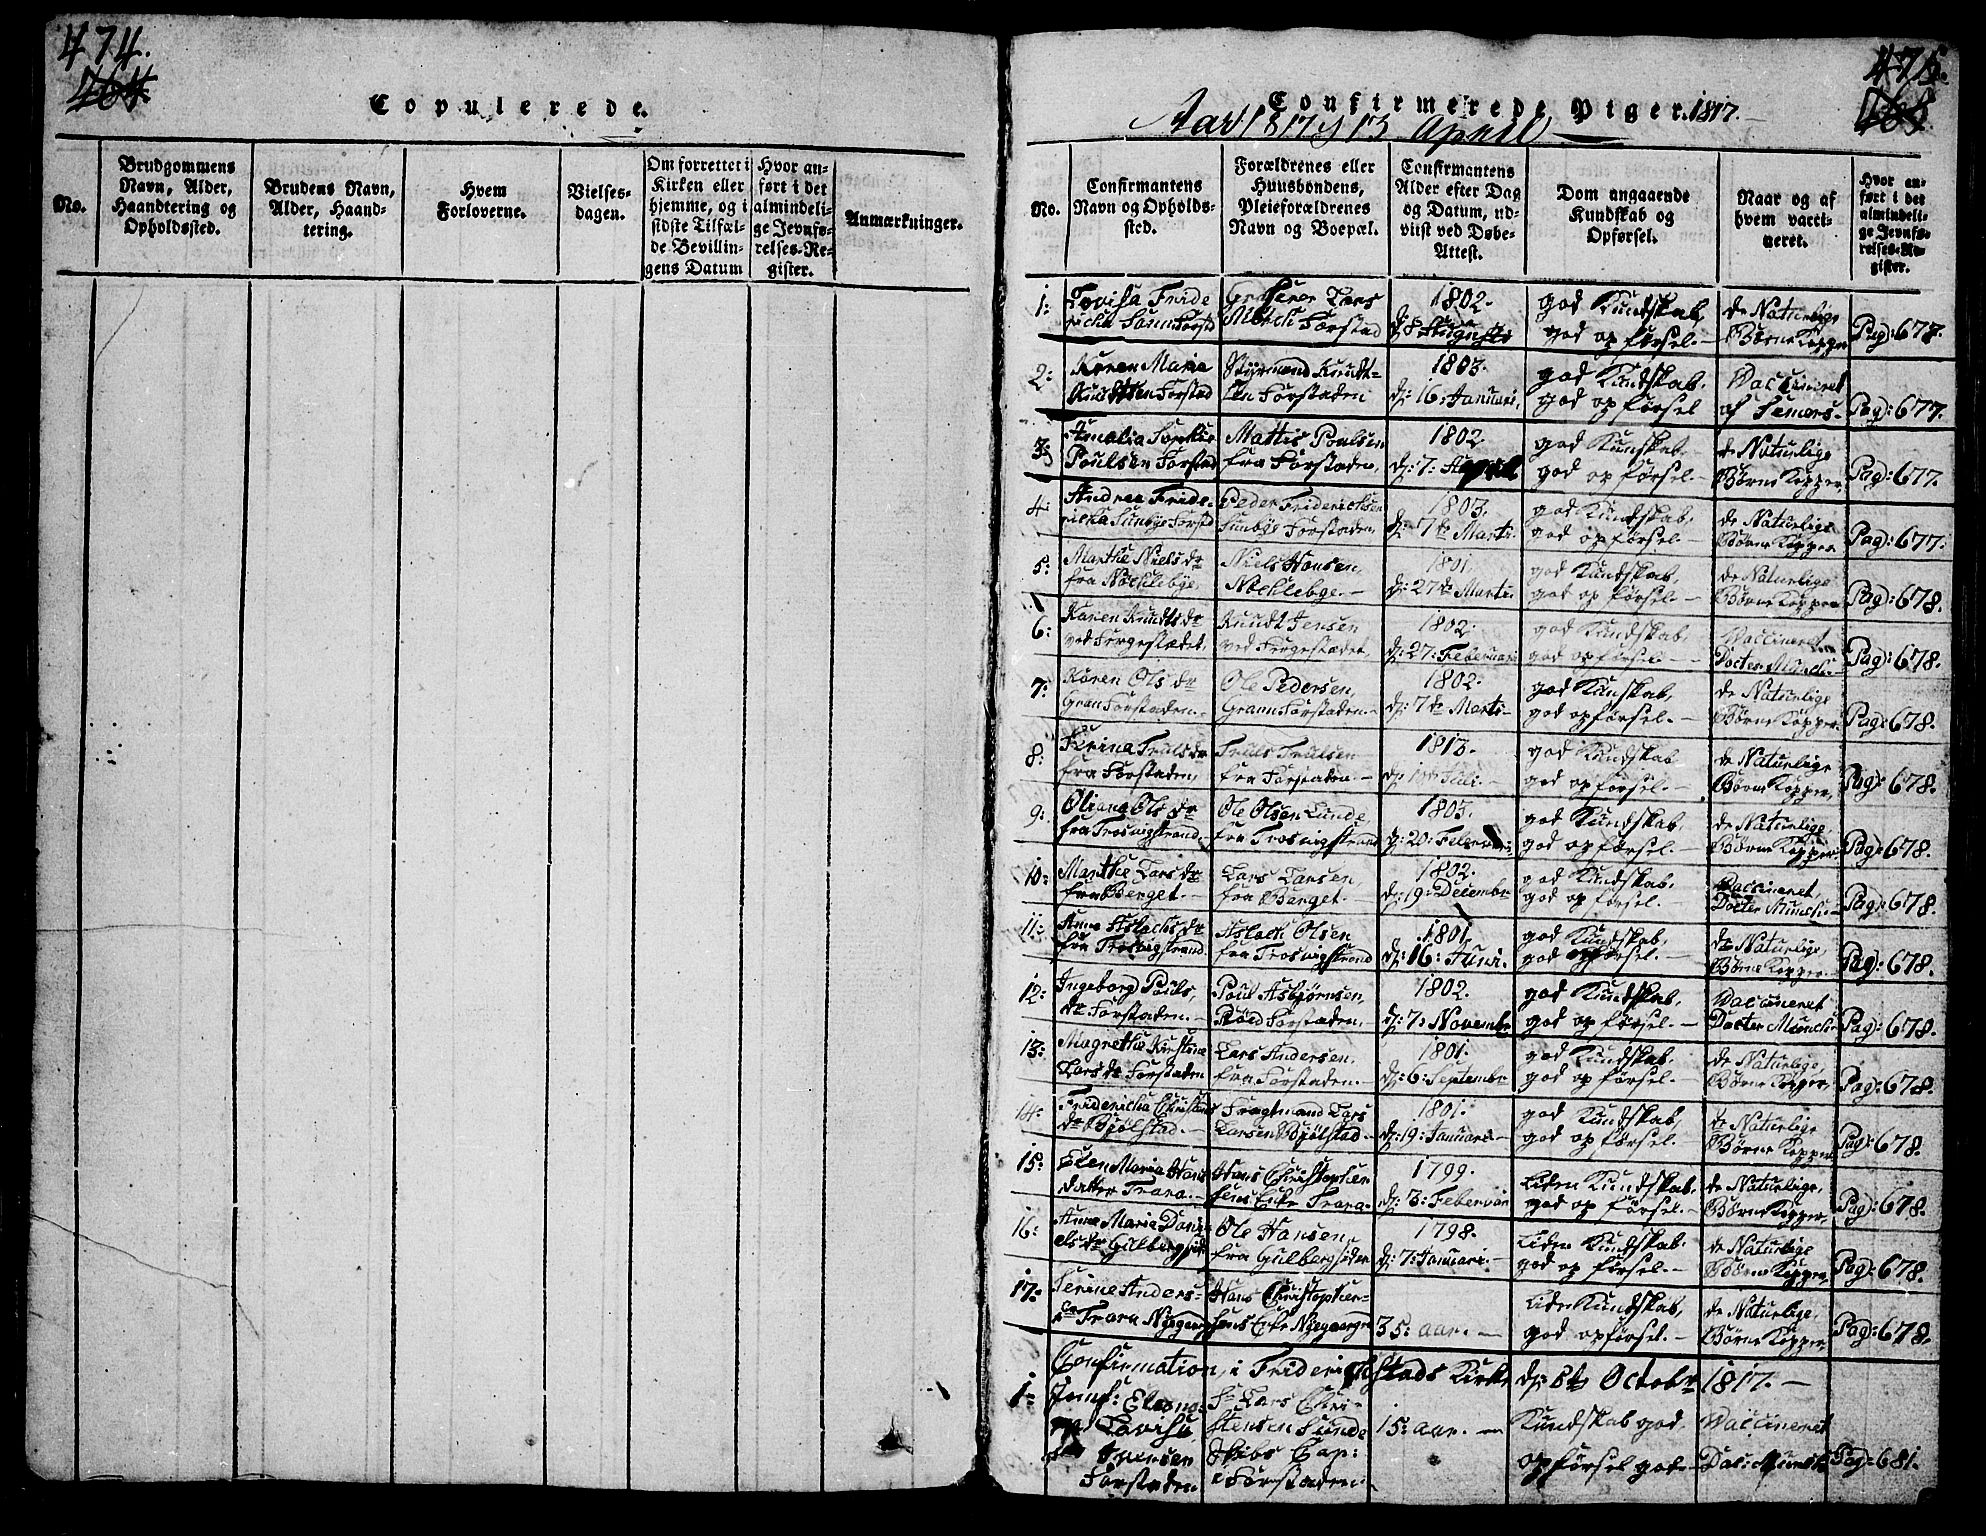 474.
Copulerede.
No.
Brudgommens
Navn, Alder,
Haandtering og
Opholdssted.
Brudens Navn,
Alder, Haand-
tering.
Hvem
Forloverne.
Vielses-
dagen.
Om forrettet i
Kirken eller
hjemme, og i
sidste Tilfæl-
de Bevillin-
gens Datum
Hvor an-
ført i det
almindeli-
ge Jevnfø-
relses-Re-
gister.
Anmærkninger.
475.
Confirmerede Piger. 1817.
Aar 1817 d 13 April
No.
Confirmantens
Navn og Opholds-
sted.
Forældrenes eller
Huusbondens,
Pleieforældrenes
Navn og Boepæl.
Confirmantens
Alder efter Dag
og Datum, ud-
viist ved Døbe-
Attest.
Dom angaaende
Kundskab og
Opførsel.
Naar og af
hvem vacci-
neret.
Hvor an-
ført i det
almindeli-
ge Jevnfø-
relses-Re-
gister.
1: Lovisa Fride Lars 1802. god Kundskab, de Naturlige
Forstad god opførsel.- Børne Kopper Pag: 677.
2: Karen Maria Styrmand Knudt- 1803. god Kundskab. Vaccineret
Knudtsen Forstad sen Forstaden d: 16: Januari. god opførsel af Pag: 677.
3: Amalia Sophia Mattis Poulsen 1802 god Kunskab. de Naturlige
Poulsen Forstad fra Forstaden, d: 7: April god opførsel.- Børne Kopper, Pag: 677.
4: Andrea Fride- Peder Friderichsen 1803. god Kundskab, de Naturlige
ricka Sunbye Forstd Sunbye Forstaden, d: 7de Marti. god opførsel.- Børne Kopper Pag: 677:
5: Marthe Niels dr Niels Hansen, 1801. god Kundskab, de Naturlige
fra Nøchlebye. Nøchlebye.- d: 27de Marti- god opførsel.- Børne Kopper. Pag: 678.
6: Karen Knudts dr Knudt Jensen 1802. god Kundskab, Vaccineret
ved Færgestædet, ved Færgestædet, d: 27: Februari god opførsel.- Docter Munch. Pag: 678.
7: Karen Ols dr Ole Pedersen, 1802. god Kunskab, de Naturlige
Gran Forstaden.- Grann Forstaden.- d: 7de Marti- god opførsel.- Børne Kopper. Pag: 678.
8: Truls dr Truls Trulsen 1813. god Kundskab de Naturlige
fra Forstaden, fra Forstaden- Juli.- god opførsel.- Børne Kopper, Pag: 678.
9: Oliana Ols dr Ole Olsen Lunde, 1805. god Kundskab, de Naturlige,
fra Trosvigstrand.- fra Trosvigstrand d: 20: god opførsel.- Børne Kopper. Pag: 678.
10: Marthe Lars dr Lars Larsen, 1802. god Kundskab, Vaccineret,
fra Berget.- fra Berget.- d: 19: Decembr god opførsel.- Docter Munch.- Pag: 678.
11: Anne Aslachs dr Aslach Olsen 1801. god Kundskab, de Naturlige,
fra Trosvigstrand. fra Trosvigstrand d: 16: Juni. god opførsel.- Børne Kopper.- Pag: 678.
12: Ingeborg Pouls, Poul Asbjørnsen, 1802. god Kundskab, Vaccineret
dr Forstaden.- Røed Forstaden, d: 7: Novembr god opførsel.- Docter Munch Pag: 678.
13: Magrethe Kirstine Lars Andersen, 1801. god Kundskab. de Naturlige,
Lars dr Forstaden fra Forstaden.- d: 6: Septembr god opførsel.- Børne Kopper, Pag: 678.
14: Fridericha Christens Lars 1801. god Kundskab, de Naturlige
dr Bjølstad.- Larsen Bjølstad.- d: 19: Januari.- god opførsel.- Børne Kopper. Pag: 678.
15: Elen Maria Hans Hans Christopher 1799. Liden Kundskab. de Naturlige,
datter Trara.- sens Trara.- d: 3: Februari god opførsel.- Børne Kopper, Pag: 678.
16: Anne Maria Dani Ole Hansen, 1798. Liden Kundskab. de Naturlige
els dr Gulbergsiden fra Gulbergsiden d: 7: Januari.- god opførsel.- Børne Kopper, Pag: 678.
17: Anders- Hans Christopher- Liden Kundskab, de Naturlige,
Trara 35: aar.- god opførsel.- Børne Kopper Pag: 678.
Confirmation, i Friderichstads Kirke d: 8te Octobr 1817.-
1- Jomf: Lars Chri-
Lovisa stensen Sunde 15: aar.- Kundskab god. Vaccineret
Skibs Cap:
Forstaden Forstaden.- opførsel god.- Munch Pag: 681.